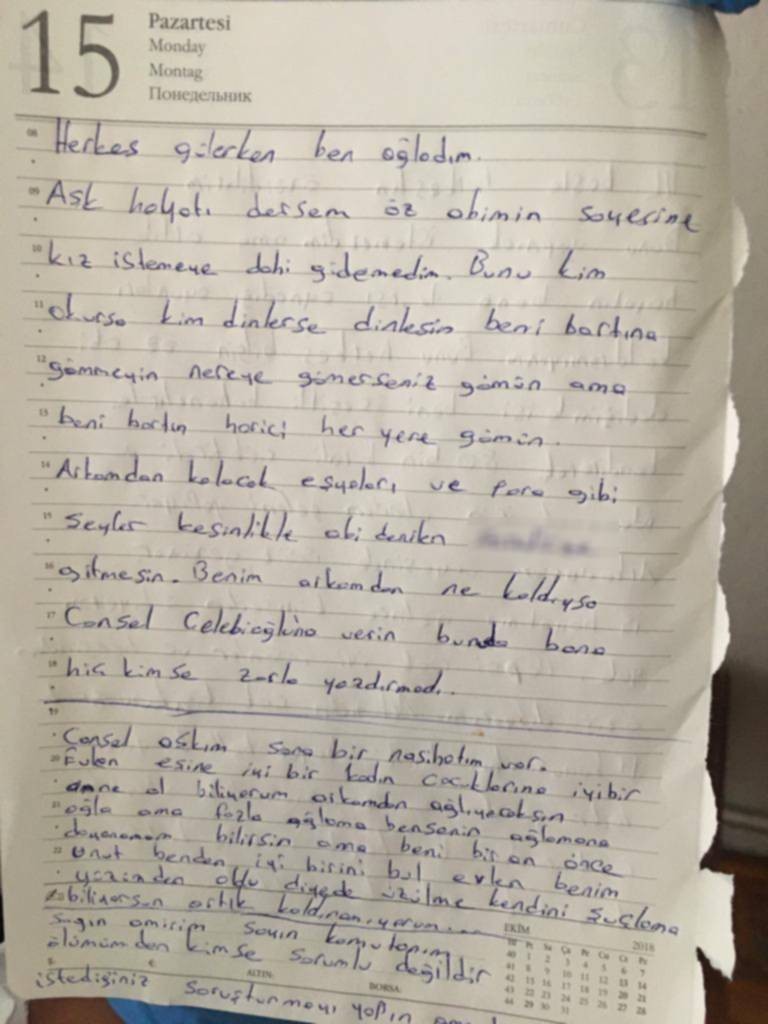 15
Pazartesi
Monday
Montag
Понедельник
08 Herkes gülerken ben ağladım.
09 Aşk hayatı dersem öz abimin sayesine
10 kız istemeye dahi gidemedim. Bunu kim
11 okursa kim dinlerse dinlesin beni bartına
12 gömmeyin nereye gömerseniz gömün ama
13 beni bartın harici her yere gömün.
14 Arkamdan kalacak eşyaları ve para gibi
15 Şeyler kesinlikle abi denilen
16 gitmesin. Benim arkamdan ne kaldıysa
17 Cansel Celebioğluna verin bunda bana
18 hiç kimse zorla yazdırmadı..
19
Cansel aşkım sana bir nasihatım var.
20 Evlen eşine iyi bir kadın çocuklarına iyi bir
anne ol biliyorum arkamdan ağlıyacaksın
21 ağla ama fazla ağlama ben senin ağlamana
dayanamam bilirsin ama beni bir an önce
22 Unut benden iyi birini bul evlen benim
yüzünden oldu diyede üzülme kendini suçlama
biliyorsun artık kaldıramıyorum...
Sayın amirim sayın komutanım
ölümümden kimse sorumlu değildir
istediğiniz soruşturmayı yapın
EKİM 2018
Hf Pt Sa Ça Pe Cu Ct Pz
40 1 2 3 4 5 6 7
41 8 9 10 11 12 13 14
42 15 16 17 18 19 20 21
43 22 23 24 25 26 27 28
44 29 30 31
$: €: ALTIN: BORSA: